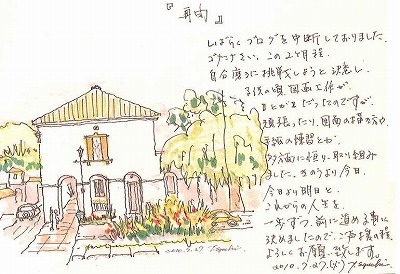 『再出』
しばらくブログを中断しておりました。
この2ヶ月程、
自分磨きに挑戦しようと決意し、
子供の頃、図画工作が
頑張ったり、図面の描き方や
の練習とか、
多方面に亘り、取り組み
ました。きのうより今日、
今日より明日と、
これからの人生を
一歩ずつ、前に進める事に
決めましたので、ご声援の程、
よろしくお願い致します。
2010.9.27(火)
2010.9.27